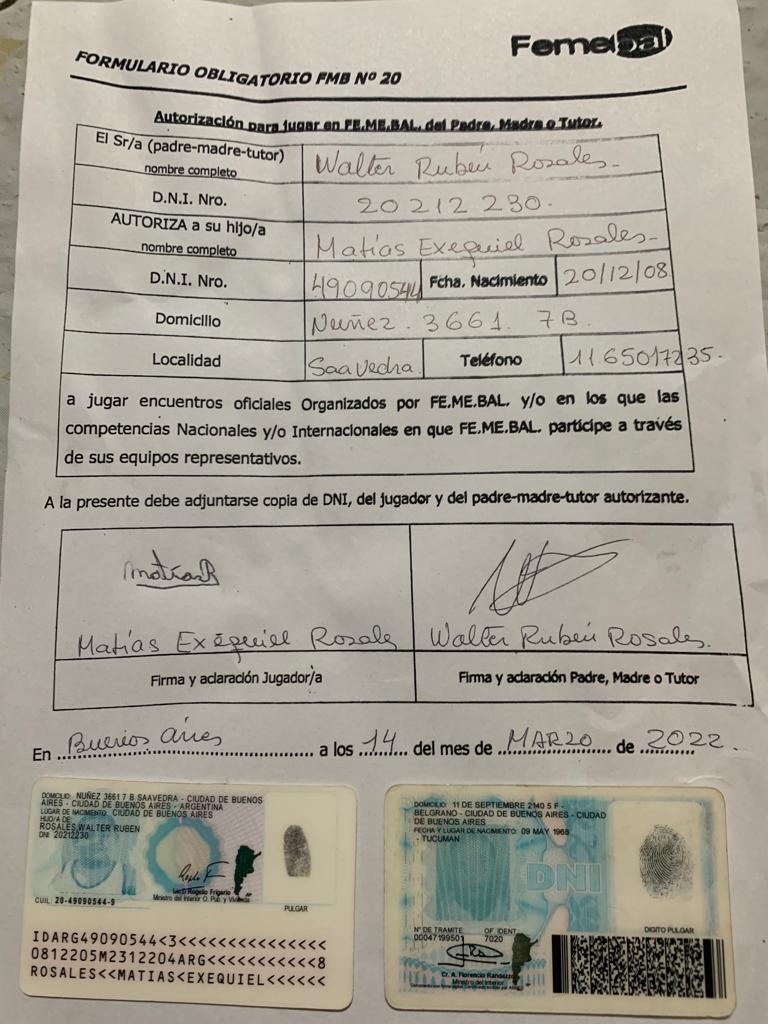 Femebal
FORMULARIO OBLIGATORIO FMB Nº 20
Autorización para jugar en FE.ME.BAL. del Padre, Madre o Tutor.
El Sr/a (padre-madre-tutor)
nombre completo
Walter Rubén Rosales.
D.N.I. Nro.
20212230.
AUTORIZA a su hijo/a
nombre completo
Matías Exequiel Rosales
D.N.I. Nro.
49090544
Fcha. Nacimiento
20/12/08
Domicilio
Nuñez. 3661. 7B.
Localidad
Saavedra.
Teléfono
1165017235.
a jugar encuentros oficiales Organizados por FE.ME.BAL. y/o en los que las
competencias Nacionales y/o Internacionales en que FE.ME.BAL. participe a través
de sus equipos representativos.
A la presente debe adjuntarse copia de DNI, del jugador y del padre-madre-tutor autorizante.
MatiasR
Matías Exequiel Rosales
Walter Rubén Rosales.
Firma y aclaración Jugador/a
Firma y aclaración Padre, Madre o Tutor
En Buenos Aires a los 14 del mes de MARZO de 2022.
DOMICILIO: NUÑEZ 3661 7 B SAAVEDRA - CIUDAD DE BUENOS
AIRES - CIUDAD DE BUENOS AIRES - ARGENTINA
LUGAR DE NACIMIENTO: CIUDAD DE BUENOS AIRES
HIJO/A DE:
ROSALES,WALTER RUBEN
DNI: 20212230
Lic. Rogelio Frigerio
Ministro del Interior O. Pub. y Vivienda
CUIL: 20-49090544-9
PULGAR
IDARG49090544<3<<<<<<<<<<<<<<<
0812205M2312204ARG<<<<<<<<<<<8
ROSALES<<MATIAS<EXEQUIEL<<<<<<
DOMICILIO: 11 DE SEPTIEMBRE 2140 5 F -
BELGRANO - CIUDAD DE BUENOS AIRES - CIUDAD
DE BUENOS AIRES
FECHA Y LUGAR DE NACIMIENTO: 09 MAY 1968
- TUCUMAN
DNI
Nº DE TRAMITE
00047199501
OF. IDENT
7020
DIGITO PULGAR
Cr. A. Florencio Randazzo
Ministro del Interior